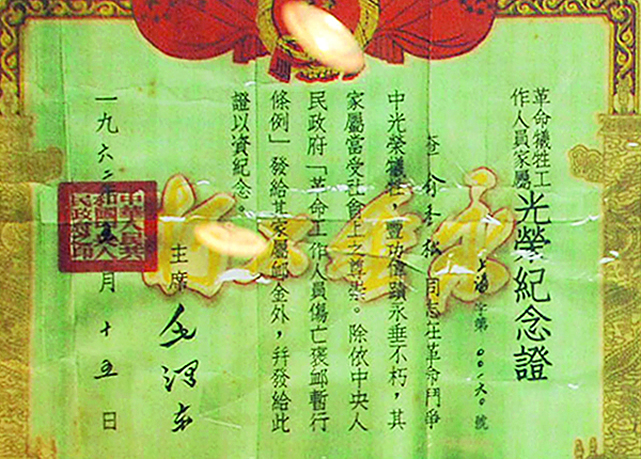 革命犧牲工
作人員家屬
光榮紀念證
上海字第〇〇一六〇號
查俞秀松同志在革命鬥爭
中光榮犧牲，豐功偉蹟永垂不朽，其
家屬當受社會上之尊崇。除依中央人
民政府「革命工作人員傷亡褒卹暫行
條例」發給其家屬卹金外，并發給此
證以資紀念。
主席 毛澤東
一九六二年 月十五日
中華人民共
和國中央人
民政府之印